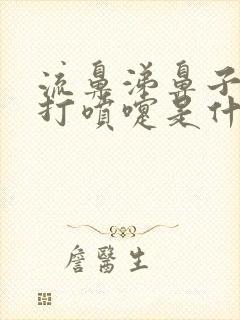 流鼻涕鼻子
打噴嚏是什
詹醫生